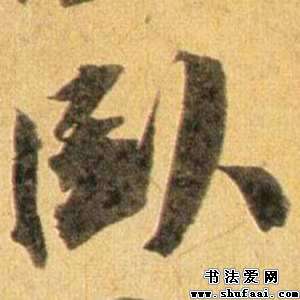 臥
书法爱网
www.shufaai.com